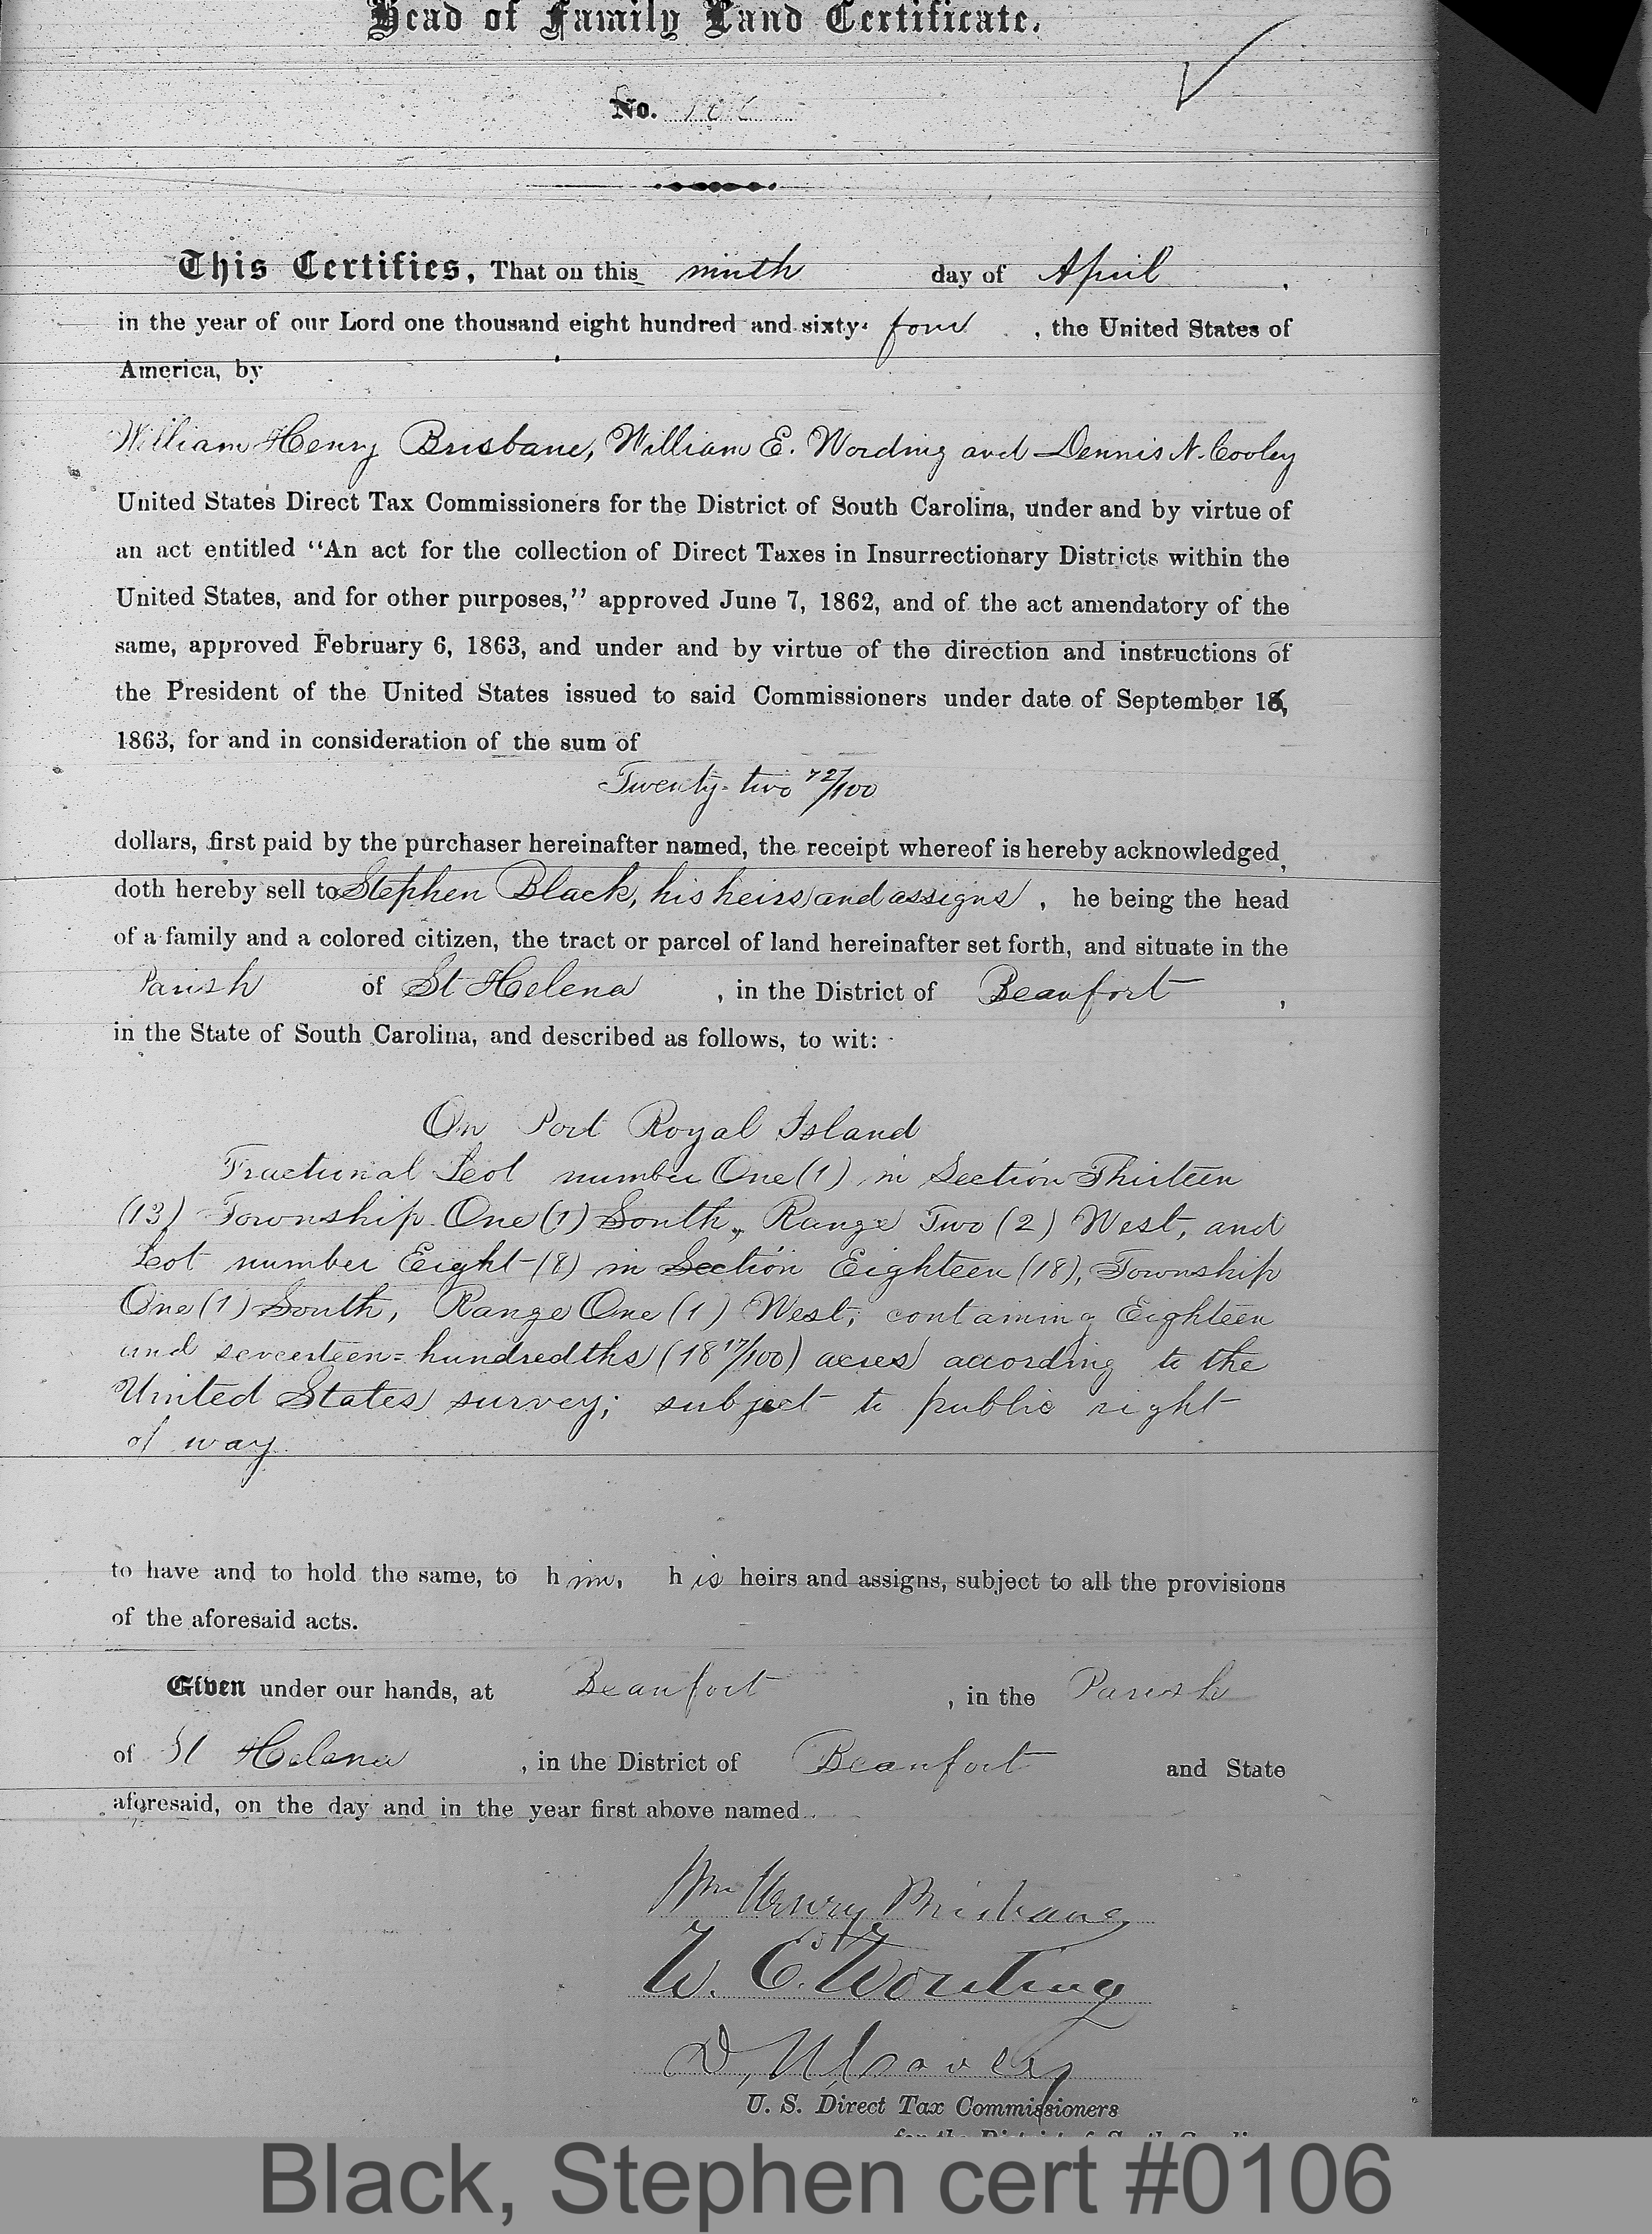 Head of Family Land Certificate.
No. 106
This Certifies, That on this ninth day of April,
in the year of our Lord one thousand eight hundred and sixty-four, the United States of
America, by
William Henry Brisbane, William E. Wording and Dennis N. Cooley
United States Direct Tax Commissioners for the District of South Carolina, under and by virtue of
an act entitled "An act for the collection of Direct Taxes in Insurrectionary Districts within the
United States, and for other purposes," approved June 7, 1862, and of the act amendatory of the
same, approved February 6, 1863, and under and by virtue of the direction and instructions of
the President of the United States issued to said Commissioners under date of September 16,
1863, for and in consideration of the sum of
Twenty-two 72/100
dollars, first paid by the purchaser hereinafter named, the receipt whereof is hereby acknowledged,
doth hereby sell to Stephen Black, his heirs and assigns, he being the head
of a family and a colored citizen, the tract or parcel of land hereinafter set forth, and situate in the
Parish of St Helena, in the District of Beaufort,
in the State of South Carolina, and described as follows, to wit:
On Port Royal Island
Fractional Lot number One (1) in Section Thirteen
(13) Township One (1) South, Range Two (2) West, and
Lot number Eight (8) in Section Eighteen (18), Township
One (1) South, Range One (1) West; containing Eighteen
and seventeen=hundredths (18 17/100) acres according to the
United States survey; subject to public right
of way.
to have and to hold the same, to him, his heirs and assigns, subject to all the provisions
of the aforesaid acts.
Given under our hands, at Beaufort, in the Parish
of St Helena, in the District of Beaufort and State
aforesaid, on the day and in the year first above named.
Wm Henry Brisbane
W. E. Wording
D. N. Cooley
U. S. Direct Tax Commissioners
for the District of South Carolina
Black, Stephen cert #0106